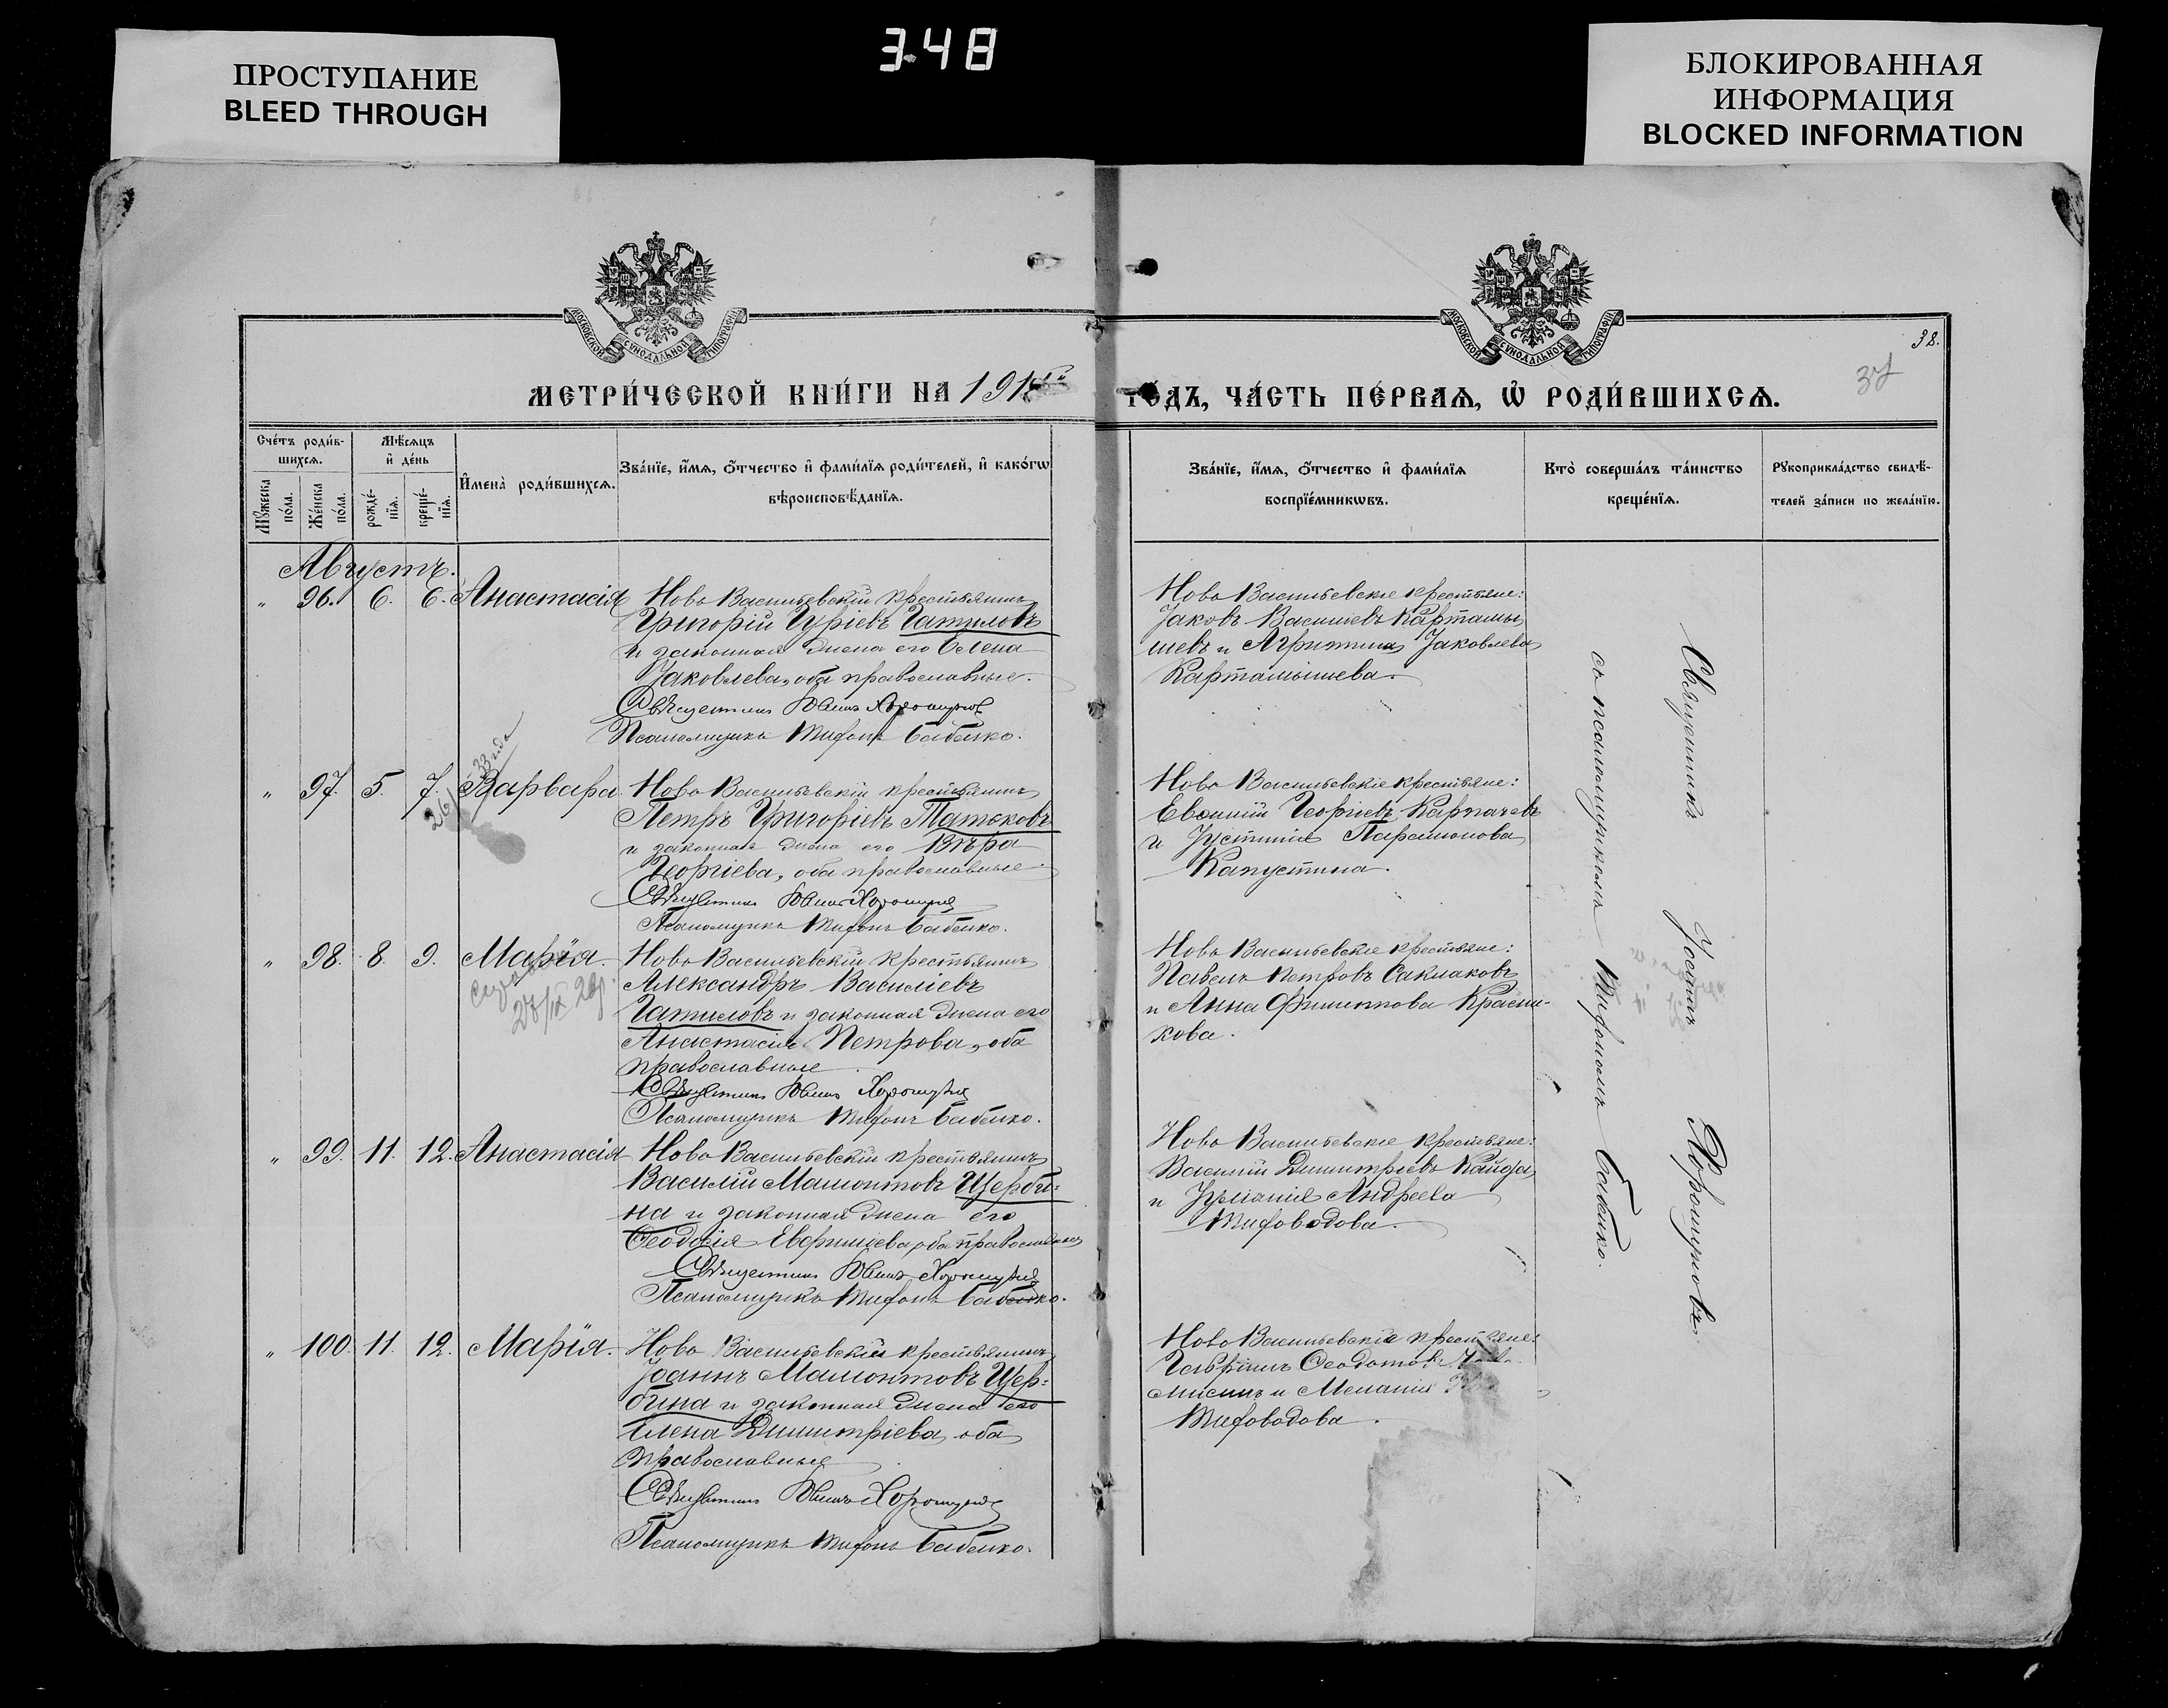 348
ПРОСТУПАНИЕ
BLEED THROUGH
БЛОКИРОВАННАЯ
ИНФОРМАЦИЯ
BLOCKED INFORMATION
МОСКОВСКОЙ СѴНОДАЛЬНОЙ ТИПОГРАФІИ
МОСКОВСКОЙ СѴНОДАЛЬНОЙ ТИПОГРАФІИ
38.
37
МЕТРИ́ЧЕСКОЙ КНИ́ГИ НА 191
ГО́ДЪ, ЧА́СТЬ ПЕ́РВАѦ, Ѽ РОДИ́ВШИХСѦ.
Сче́тъ роди́в-
шихсѧ.
Мꙋ́жеска по́ла.
Же́нска по́ла.
Мѣ́сѧцъ
и҆ де́нь
рожде́-нїѧ.
креще́-нїѧ.
И҆мена̀ роди́вшихсѧ.
Зва́нїе, и҆́мѧ, ѻ҆́тчество и҆ фами́лїѧ роди́телей, и҆ како́гѡ
вѣроисповѣ́данїѧ.
Зва́нїе, и҆́мѧ, ѻ҆́тчество и҆ фами́лїѧ
воспрїе́мникѡвъ.
Кто̀ соверша́лъ та́инство
креще́нїѧ.
Рꙋкоприкла́дство свидѣ́-
телей за́писи по жела́нїю.
Августъ.
" 96. 6. 6. Анастасія
Ново Васильевскій крестьянинъ
Григорій Гуріевъ Гатиловъ
и законная жена его Елена
Яковлева, оба православные.
Священникъ Іоаннъ Хорошуновъ
Псаломщикъ Тифонъ Бабенко.
Ново Васильевскіе крестьяне:
Іаковъ Васильевъ Картамы
шевъ и Агриппина Іаковлева
Картамышева.
" 97. 5. 7. Варвара
Ново Васильевскій крестьянинъ
Петръ Григоріевъ Татьковъ
и законная жена его Вѣра
Георгіева, оба православные
Священникъ Іоаннъ Хорошуновъ
Псаломщикъ Тифонъ Бабенко.
Ново Васильевскіе крестьяне:
Евѳимій Георгіевъ Карпачевъ
и Іустинія Парамонова
Капустина.
" 98. 8. 9. Марія.
27/IX 29г.
Ново Васильевскій крестьянинъ
Александръ Василіевъ
Гатиловъ и законная жена его
Анастасія Петрова, оба
православные
Священникъ Іоаннъ Хорошуновъ
Псаломщикъ Тифонъ Бабенко.
Ново Васильевскіе крестьяне:
Павелъ Петровъ Саклаковъ
и Анна Филиппова Красни-
кова.
" 99. 11. 12. Анастасія
Ново Васильевскій крестьянинъ
Василій Мамонтовъ Щерби=
на и законная жена его
Ѳеодосія оба православные
Священникъ Іоаннъ Хорошуновъ
Псаломщикъ Тифонъ Бабенко.
Ново Васильевскіе крестьяне:
Василій Димитріевъ Кайда
и Іуліанія Андреева
Тифоводова.
" 100. 11. 12. Марія.
Ново Васильевскій крестьянинъ
Іоаннъ Мамонтовъ Щер=
бина и законная жена его
Елена Димитріева, оба
православные
Священникъ Іоаннъ Хорошуновъ
Псаломщикъ Тифонъ Бабенко.
Ново Васильевскіе крестьяне:
Гавріилъ Ѳеодотовъ
и Меланія
Тифоводова.
Священникъ Іоаннъ Хорошуновъ
съ псаломщикомъ Тифономъ Бабенко.